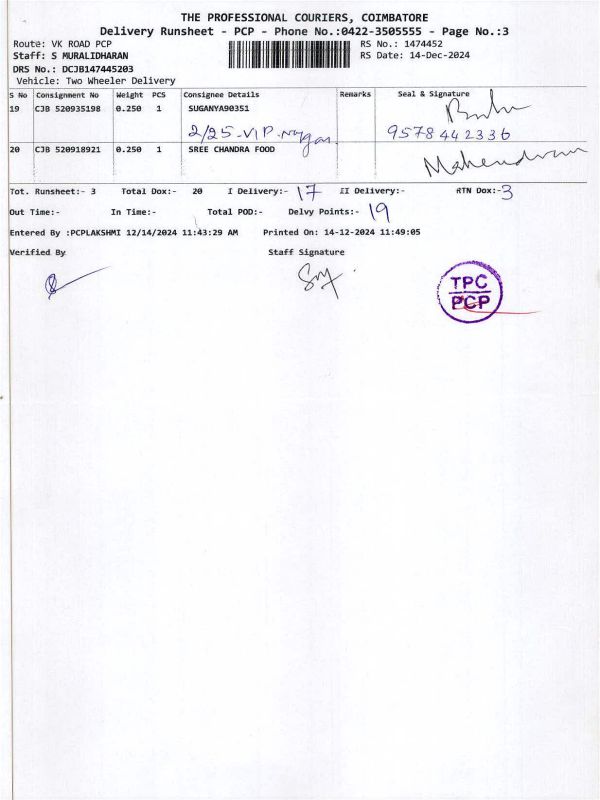 THE PROFESSIONAL COURIERS, COIMBATORE
Delivery Runsheet - PCP - Phone No.:0422-3505555 - Page No.:3
Route: VK ROAD PCP RS No.: 1474452
Staff: S MURALIDHARAN RS Date: 14-Dec-2024
DRS No.: DCJB147445203
Vehicle: Two Wheeler Delivery
S No Consignment No Weight PCS Consignee Details Remarks Seal & Signature
19 CJB 520935198 0.250 1 SUGANYA90351
2/25-VIP-Nagar. 9578442336
20 CJB 520918921 0.250 1 SREE CHANDRA FOOD Mahendran
Tot. Runsheet:- 3 Total Dox:- 20 I Delivery:- 17 II Delivery:- RTN Dox:- 3
Out Time:- In Time:- Total POD:- Delvy Points:- 19
Entered By :PCPLAKSHMI 12/14/2024 11:43:29 AM Printed On: 14-12-2024 11:49:05
Verified By Staff Signature
TPC
PCP